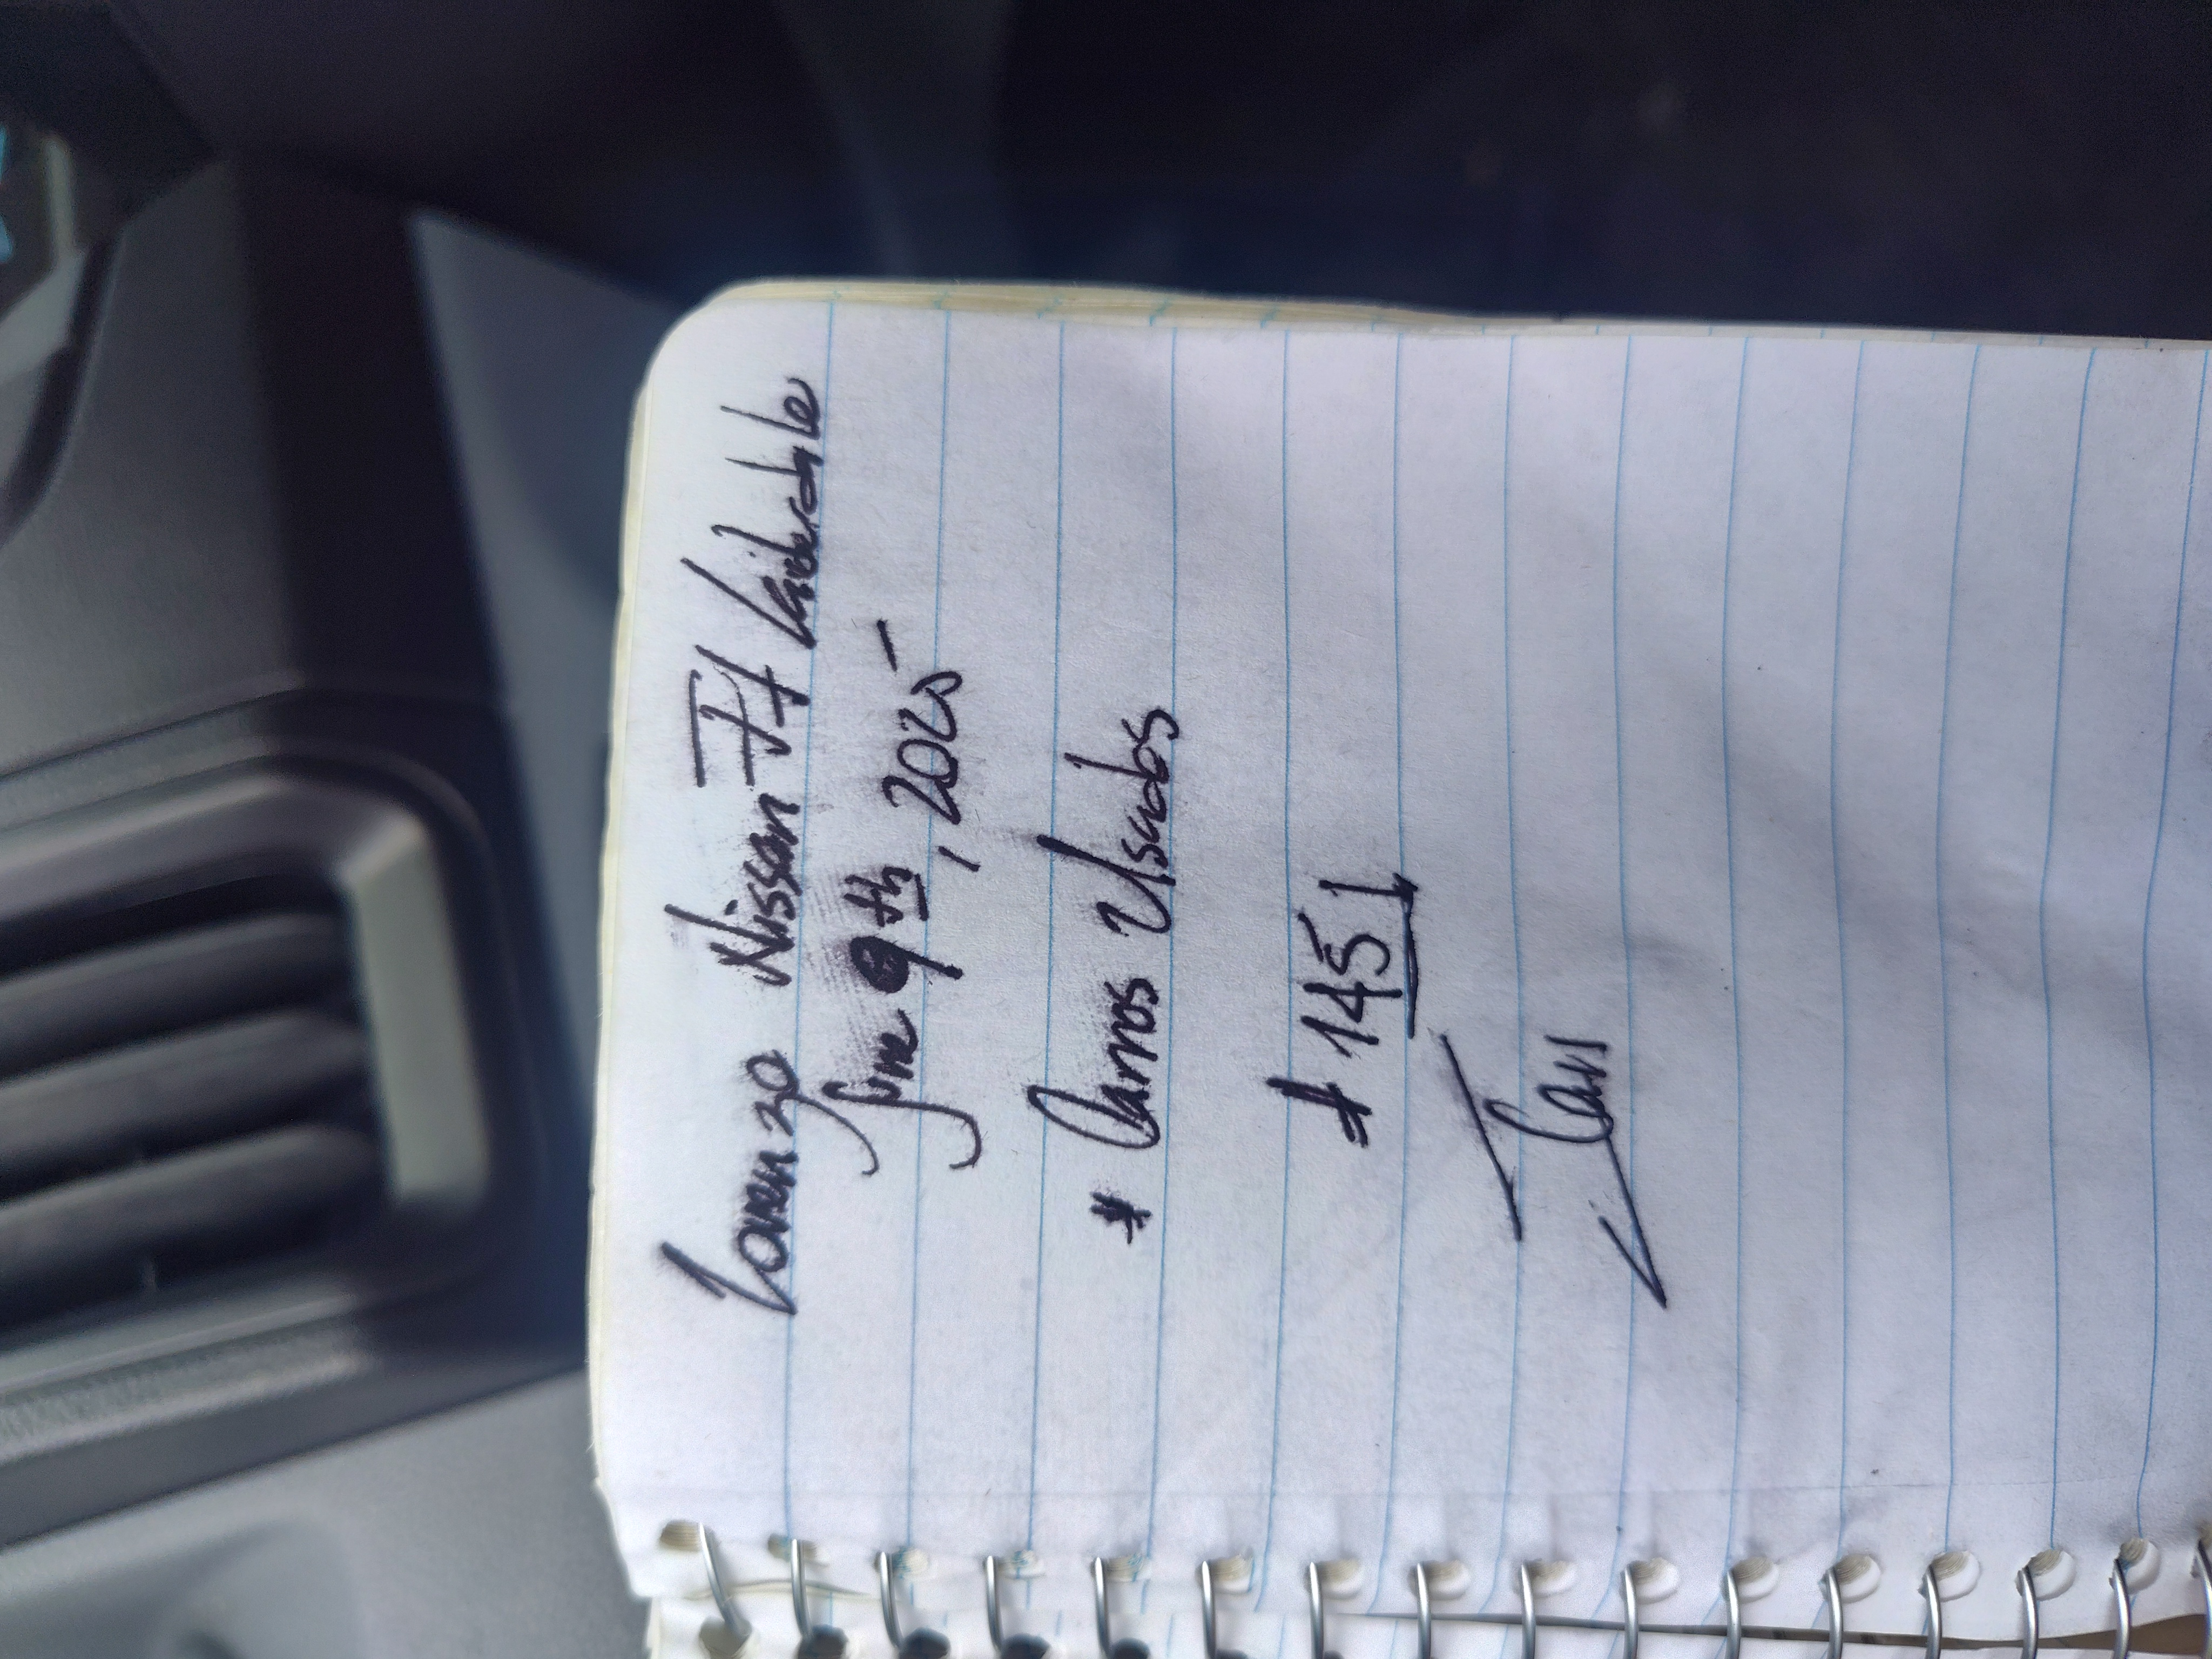 Lorenzo Nissan Ft Lauderdale
June 9th, 2025
* Carros Usados
# 1451